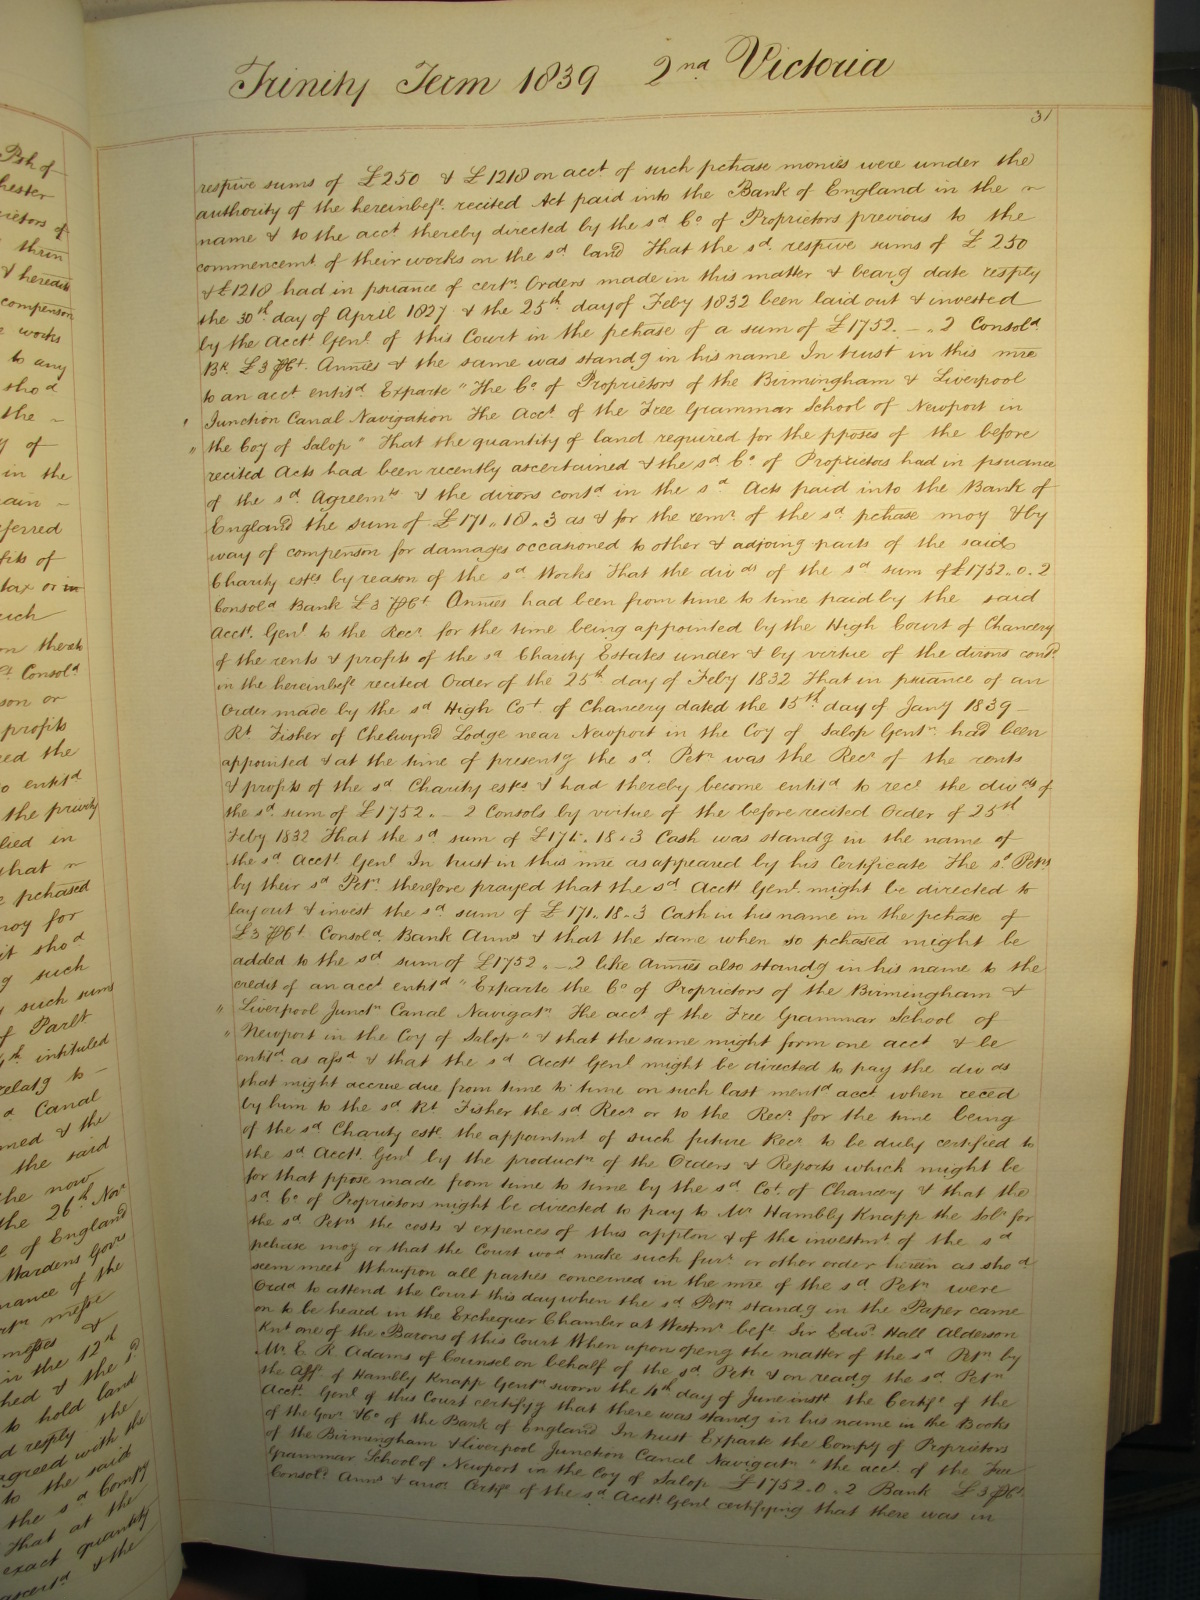 Trinity Term 1839 2nd Victoria
31
respive sums of £250 & £1218 on acct of such pchase monies were under the
authority of the hereinbefe. recited Act paid into the Bank of England in the
name & to the acct thereby directed by the sd Co of Proprietors previous to the
commencemt of their works on the sd land That the sd respive sums of £250
& £1218 had in psuance of certn Orders made in this matter & bearg date resply
the 30th day of April 1827 & the 25th day of Feby 1832 been laid out & invested
by the Acct Genl of this Court in the pchase of a sum of £1752. – . 2 Consold
Bk £3 P Ct Annies & the same was standg in his name In trust in this mre
to an acct entitd Exparte "The Co of Proprietors of the Birmingham & Liverpool
" Junction Canal Navigation The Acct of the Free Grammar School of Newport in
" the Coy of Salop" That the quantity of land required for the pposes of the before
recited Acts had been recently ascertained & the sd Co of Proprietors had in psuance
of the sd Agreemts & the dirons contd in the sd Acts paid into the Bank of
England the sum of £171..18.3 as & for the remr of the sd pchase moy & by
way of compenson for damages occasioned to other & adjoing parts of the said
Charity estes by reason of the sd Works That the divds of the sd sum of £1752..0.2
Consold Bank £3 P Ct Annies had been from time to time paid by the said
Acct Genl to the Recr for the time being appointed by the High Court of Chancery
of the rents & profits of the sd Charity Estates under & by virtue of the dirons contd
in the hereinbefe recited Order of the 25th day of Feby 1832 That in psuance of an
Order made by the sd High Cot of Chancery dated the 15th day of Jany 1839 –
Rt Fisher of Chetwynd Lodge near Newport in the Coy of Salop Gentn had been
appointed & at the time of presentg the sd Petn was the Recr of the rents
& profits of the sd Charity estes & had thereby become entitd to rece the divds of
the sd sum of £1752. – 2 Consols by virtue of the before recited Order of 25th
Feby 1832 That the sd sum of £171.18.3 Cash was standg in the name of
the sd Acct Genl In trust in this mre as appeared by his Certificate The sd Petrs
by their sd Petn therefore prayed that the sd Acct Genl might be directed to
lay out & invest the sd sum of £171.18.3 Cash in his name in the pchase of
£3 P Ct Consold Bank Anns & that the same when so pchased might be
added to the sd sum of £1752 . – 2 like Annies also standg in his name to the
credit of an acct entitd "Exparte the Co of Proprietors of the Birmingham &
" Liverpool Junctn Canal Navigatn The acct of the Free Grammar School of
" Newport in the Coy of Salop" & that the same might form one acct & be
entitd as afsd & that the sd Acct Genl might be directed to pay the divds
that might accrue due from time to time on such last mentd acct when reced
by him to the sd Rt Fisher the sd Recr or to the Recr for the time being
of the sd Charity este the appointmt of such future Recr to be duly certified to
the sd Acct Genl by the productn of the Orders & Reports which might be
for that ppose made from time to time by the sd Cot of Chancery & that the
sd Co of Proprietors might be directed to pay to Mr Hambly Knapp the Solr for
the sd Petrs the costs & expences of this applon & of the investmt of the sd
pchase moy or that the Court wod make such furr or other order herein as shod
seem meet Whrupon all parties concerned in the mre of the sd Petn were
Ordd to attend the Court this day when the sd Petn standg in the Paper came
on to be heard in the Exchequer Chamber at Westmr befe Sir Edwd Hall Alderson
Knt one of the Barons of this Court When upon openg the matter of the sd Petn by
Mr C R Adams of Counsel on behalf of the sd Petrs & on readg the sd Petn
the Afft of Hambly Knapp Gentn sworn the 4th day of June instt the Certife of the
Acct Genl of this Court certifyg that there was standg in his name in the Books
of the Govr & Co of the Bank of England In trust Exparte the Compy of Proprietors
of the Birmingham & Liverpool Junction Canal Navigatn "the acct of the Free
Grammar School of Newport in the Coy of Salop £1752.0.2 Bank £3 P Ct
Consold Anns & anor Certife of the sd Acct Genl certifying that there was in